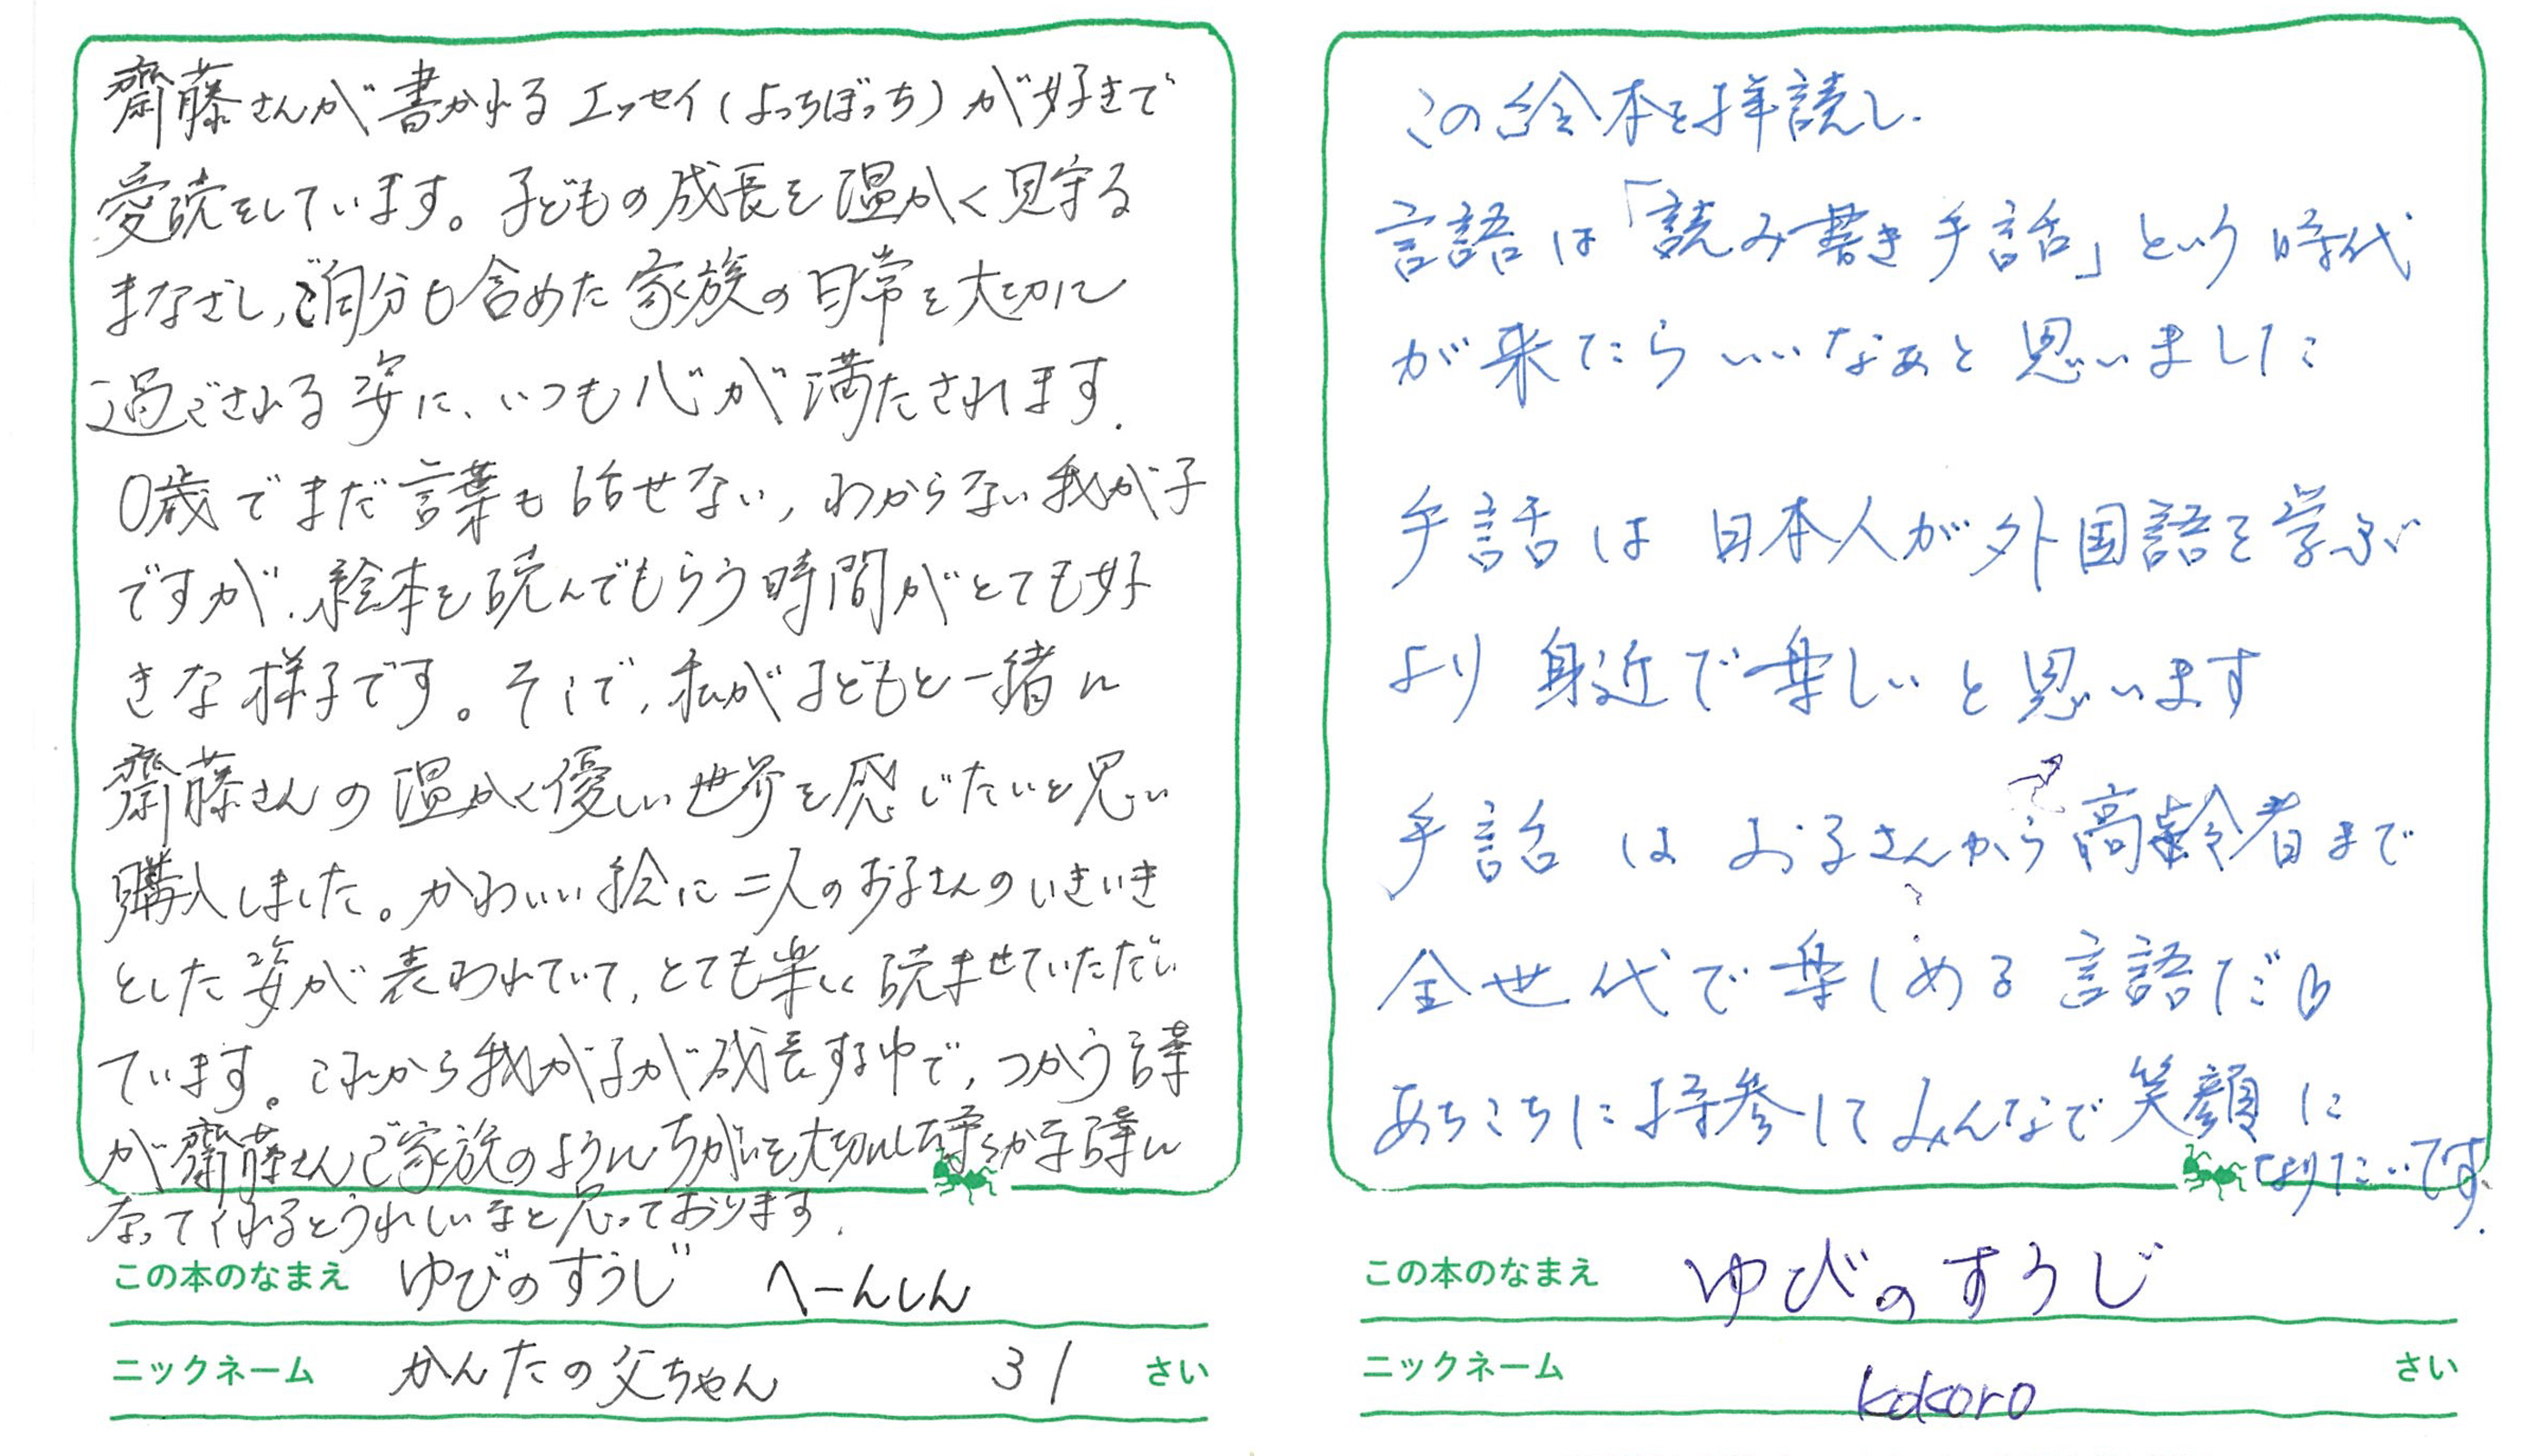 齋藤さんが書かれるエッセイ(よっちぼっち)が好きで
愛読をしています。子どもの成長を温かく見守る
まなざし、ご自分も含めた家族の日常を大切に
過ごされる姿に、いつも心が満たされます.
0歳でまだ言葉も話せない、わからない我が子
ですが、絵本を読んでもらう時間がとても好
きな様子です。そこで、私が子どもと一緒に
齋藤さんの温かく優しい世界を感じたいと思い
購入しました。かわいい絵に二人のお子さんのいきいき
とした姿が表われていて、とても楽しく読ませていただい
ています。これから我が子が成長する中で、つかう言葉
が齋藤さんご家族のようにちがいを大切にした
なってくれるとうれしいなと思っております.
この本のなまえ ゆびのすうじ へーんしん
ニックネーム かんたの父ちゃん 31 さい
この絵本を拝読し.
言語は「読み書き手話」という時代
が来たらいいなぁと思いました
手話は日本人が外国語を学ぶ
より身近で楽しいと思います
手話はお子さんから高齢者まで
全世代で楽しめる言語だ
あちこちに持参してみんなで笑顔に
なりたいです.
この本のなまえ ゆびのすうじ
ニックネーム kokoro さい